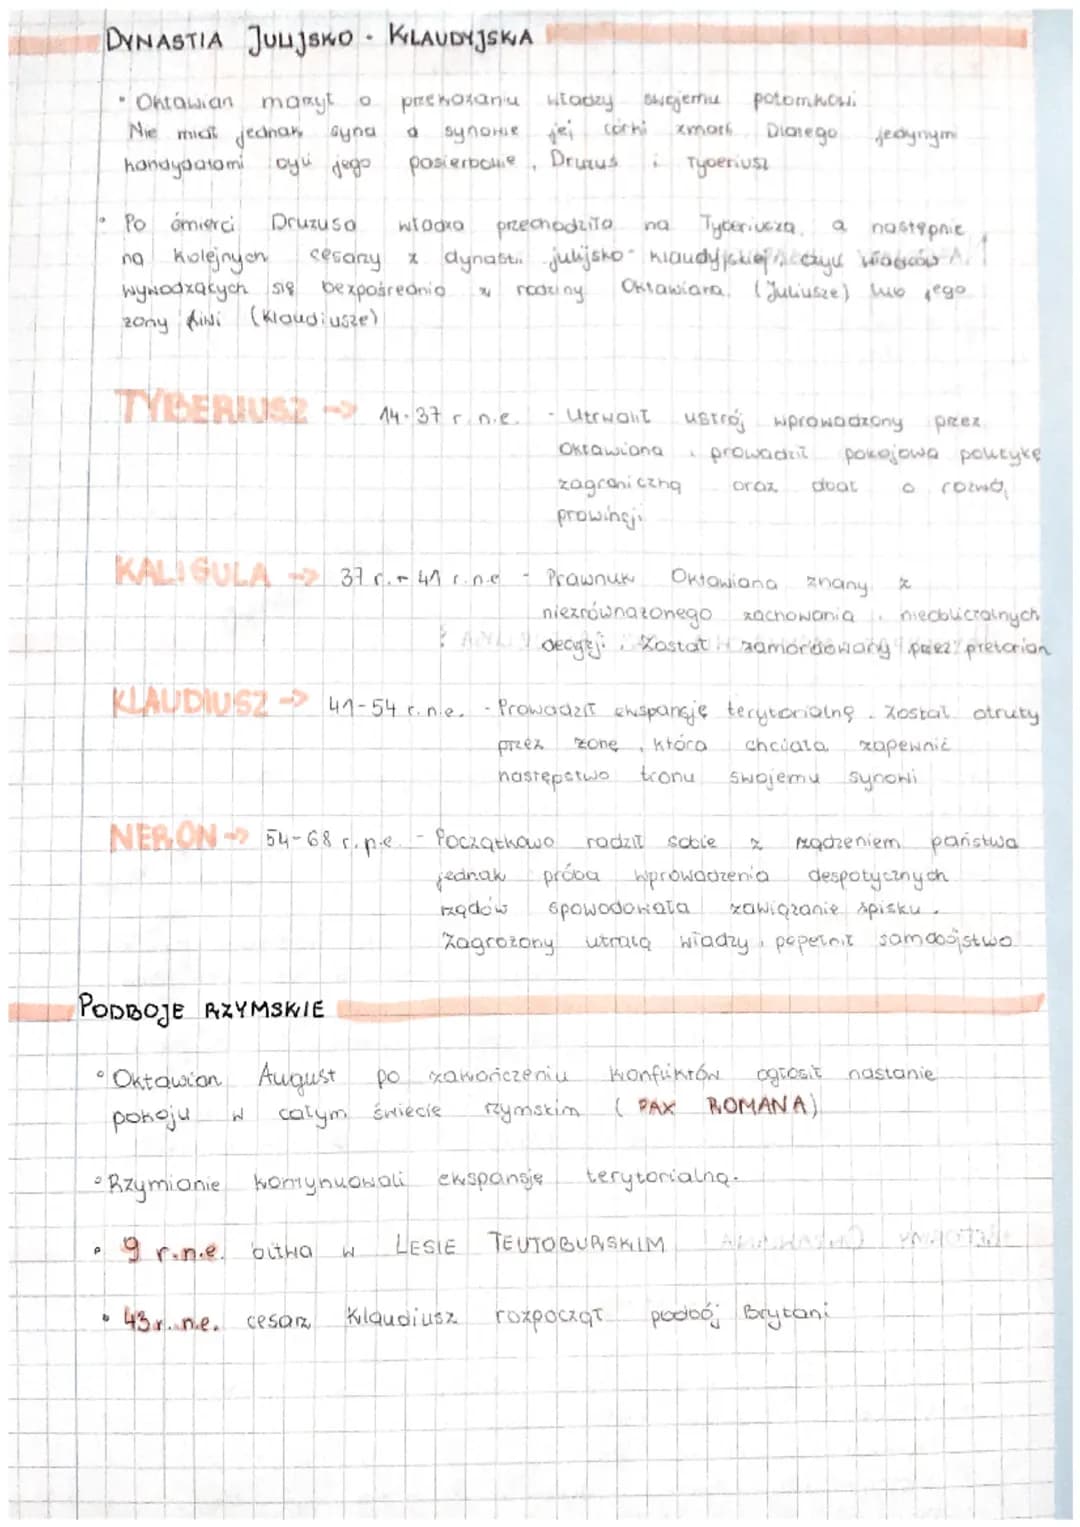 DYNASTIA JULIJSKO - KLAUDYJSKA
• Oktawian marzył o przekazaniu władzy swojemu potomkowi.
Nie miał jednak syna a synowie jej córki zmarli. Dlatego jedynymi
kandydatami byli jego pasierbowie, Druzus i Tyberiusz
• Po śmierci Druzusa władza przechodziła na Tyberiusza, a następnie
na kolejnych cesarzy z dynastii julijsko-klaudyjskiej, czyli władców
wywodzących się bezpośrednio z rodziny Oktawiana (Juliusze) lub jego
żony Liwi (Klaudiusze)
TYBERIUSZ → 14-37 r. n.e. - Utrwalił ustrój wprowadzony przez
Oktawiana, prowadził pokojową politykę
zagraniczną oraz dbał o rozwój
prowincji
KALIGULA → 37 r. - 41 r. n.e - Prawnuk Oktawiana znany z
niezrównażonego zachowania i nieobliczalnych
decyzji. Został zamordowany przez pretorian
KLAUDIUSZ → 41-54 r. n.e. - Prowadził ekspansję terytorialną. Został otruty
przez żonę, która chciała zapewnić
następstwo tronu swojemu synowi
NERON → 54-68 r. n.e. - Początkowo radził sobie z rządzeniem państwa
jednak próba wprowadzenia despotycznych
rządów spowodowała zawiązanie spisku.
Zagrożony utratą władzy, popełnił samobójstwo
PODBOJE RZYMSKIE
• Oktawian August po zakończeniu konfliktów ogłosił nastanie
pokoju w całym świecie rzymskim (PAX ROMANA)
• Rzymianie kontynuowali ekspansję terytorialną.
• 9 r.n.e. bitwa w LESIE TEUTOBURSKIM
• 43 r. n.e. cesarz Klaudiusz rozpoczął podbój Brytani